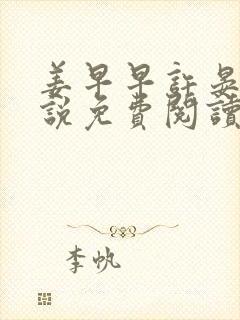 姜早早許晏
說免費閱讀
李帆